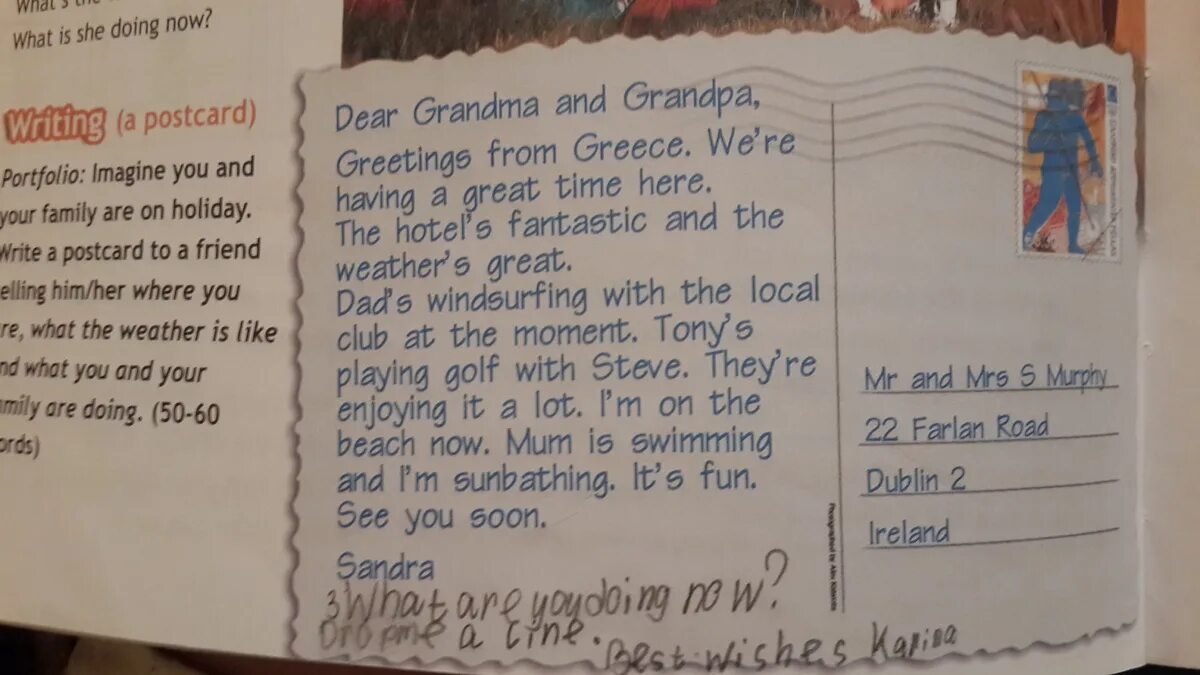 What is she doing now?
Writing (a postcard)
Portfolio: Imagine you and
your family are on holiday.
Write a postcard to a friend
elling him/her where you
re, what the weather is like
nd what you and your
amily are doing. (50-60
ords)
Dear Grandma and Grandpa,
Greetings from Greece. We're
having a great time here.
The hotel's fantastic and the
weather's great.
Dad's windsurfing with the local
club at the moment. Tony's
playing golf with Steve. They're
enjoying it a lot. I'm on the
beach now. Mum is swimming
and I'm sunbathing. It's fun.
See you soon.
Sandra
3 What are you doing now?
Drop me a line.
Best wishes Karina
Mr and Mrs S Murphy
22 Farlan Road
Dublin 2
Ireland